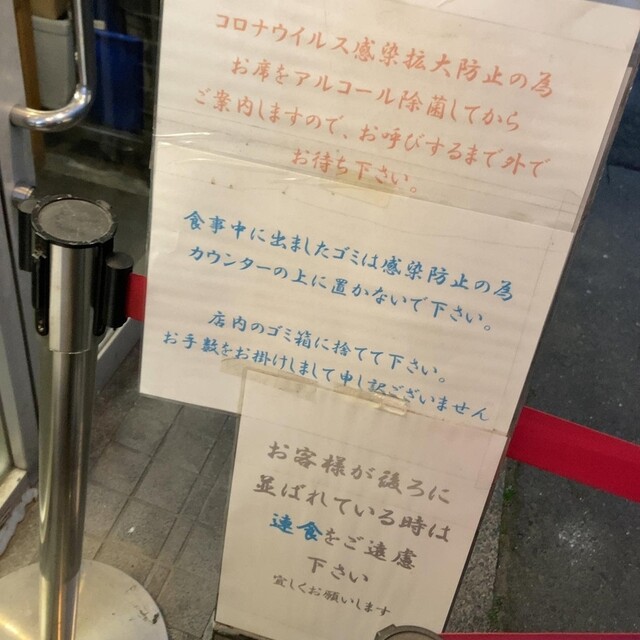 コロナウイルス感染拡大防止の為
お席をアルコール除菌してから
ご案内しますので、お呼びするまで外で
お待ち下さい。
食事中に出ましたゴミは感染防止の為
カウンターの上に置かないで下さい。
店内のゴミ箱に捨てて下さい。
お手数をお掛けしまして申し訳ございません
お客様が後ろに
並ばれている時は
連食をご遠慮
下さい
宜しくお願いします